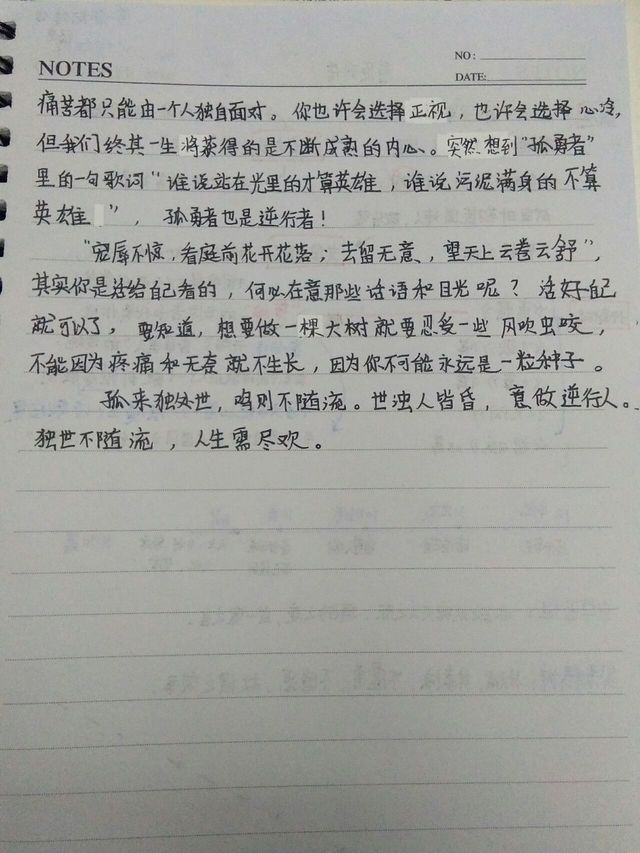 NOTES
NO:
DATE:
痛苦都只能由一个人独自面对。你也许会选择正视，也许会选择心冷，
但我们终其一生将获得的是不断成熟的内心。突然想到“孤勇者”
里的一句歌词“谁说站在光里的才算英雄，谁说污泥满身的不算
英雄”，孤勇者也是逆行者！
“宠辱不惊，看庭前花开花落；去留无意，望天上云卷云舒”，
其实你是活给自己看的，何必在意那些话语和目光呢？活好自己
就可以了，要知道，想要做一棵大树就要忍受一些风吹虫咬，
不能因为疼痛和无奈就不生长，因为你不可能永远是一粒种子。
孤来独处世，鸣则不随流。世浊人皆昏，意做逆行人。
独世不随流，人生需尽欢。